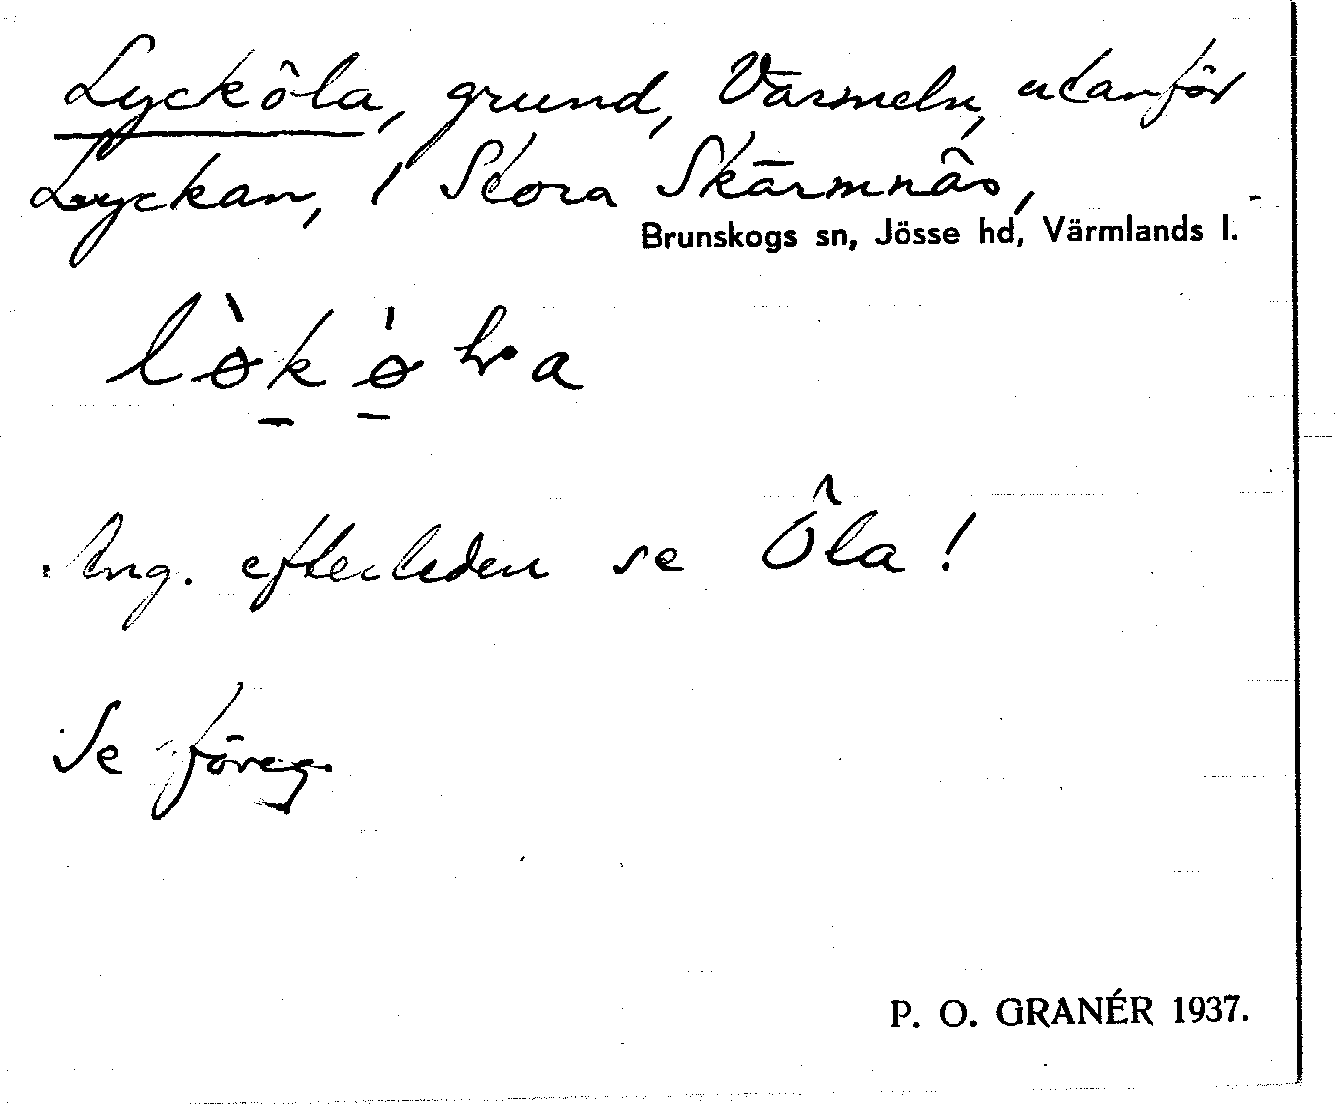 Lycköla, grund, Värmeln, utanför
Lyckan, i Stora Skärmnäs,
Brunskogs sn, Jösse hd, Värmlands l.
Ang. efterleden se Öla!
Se föreg.
P. O. GRANÉR 1937.